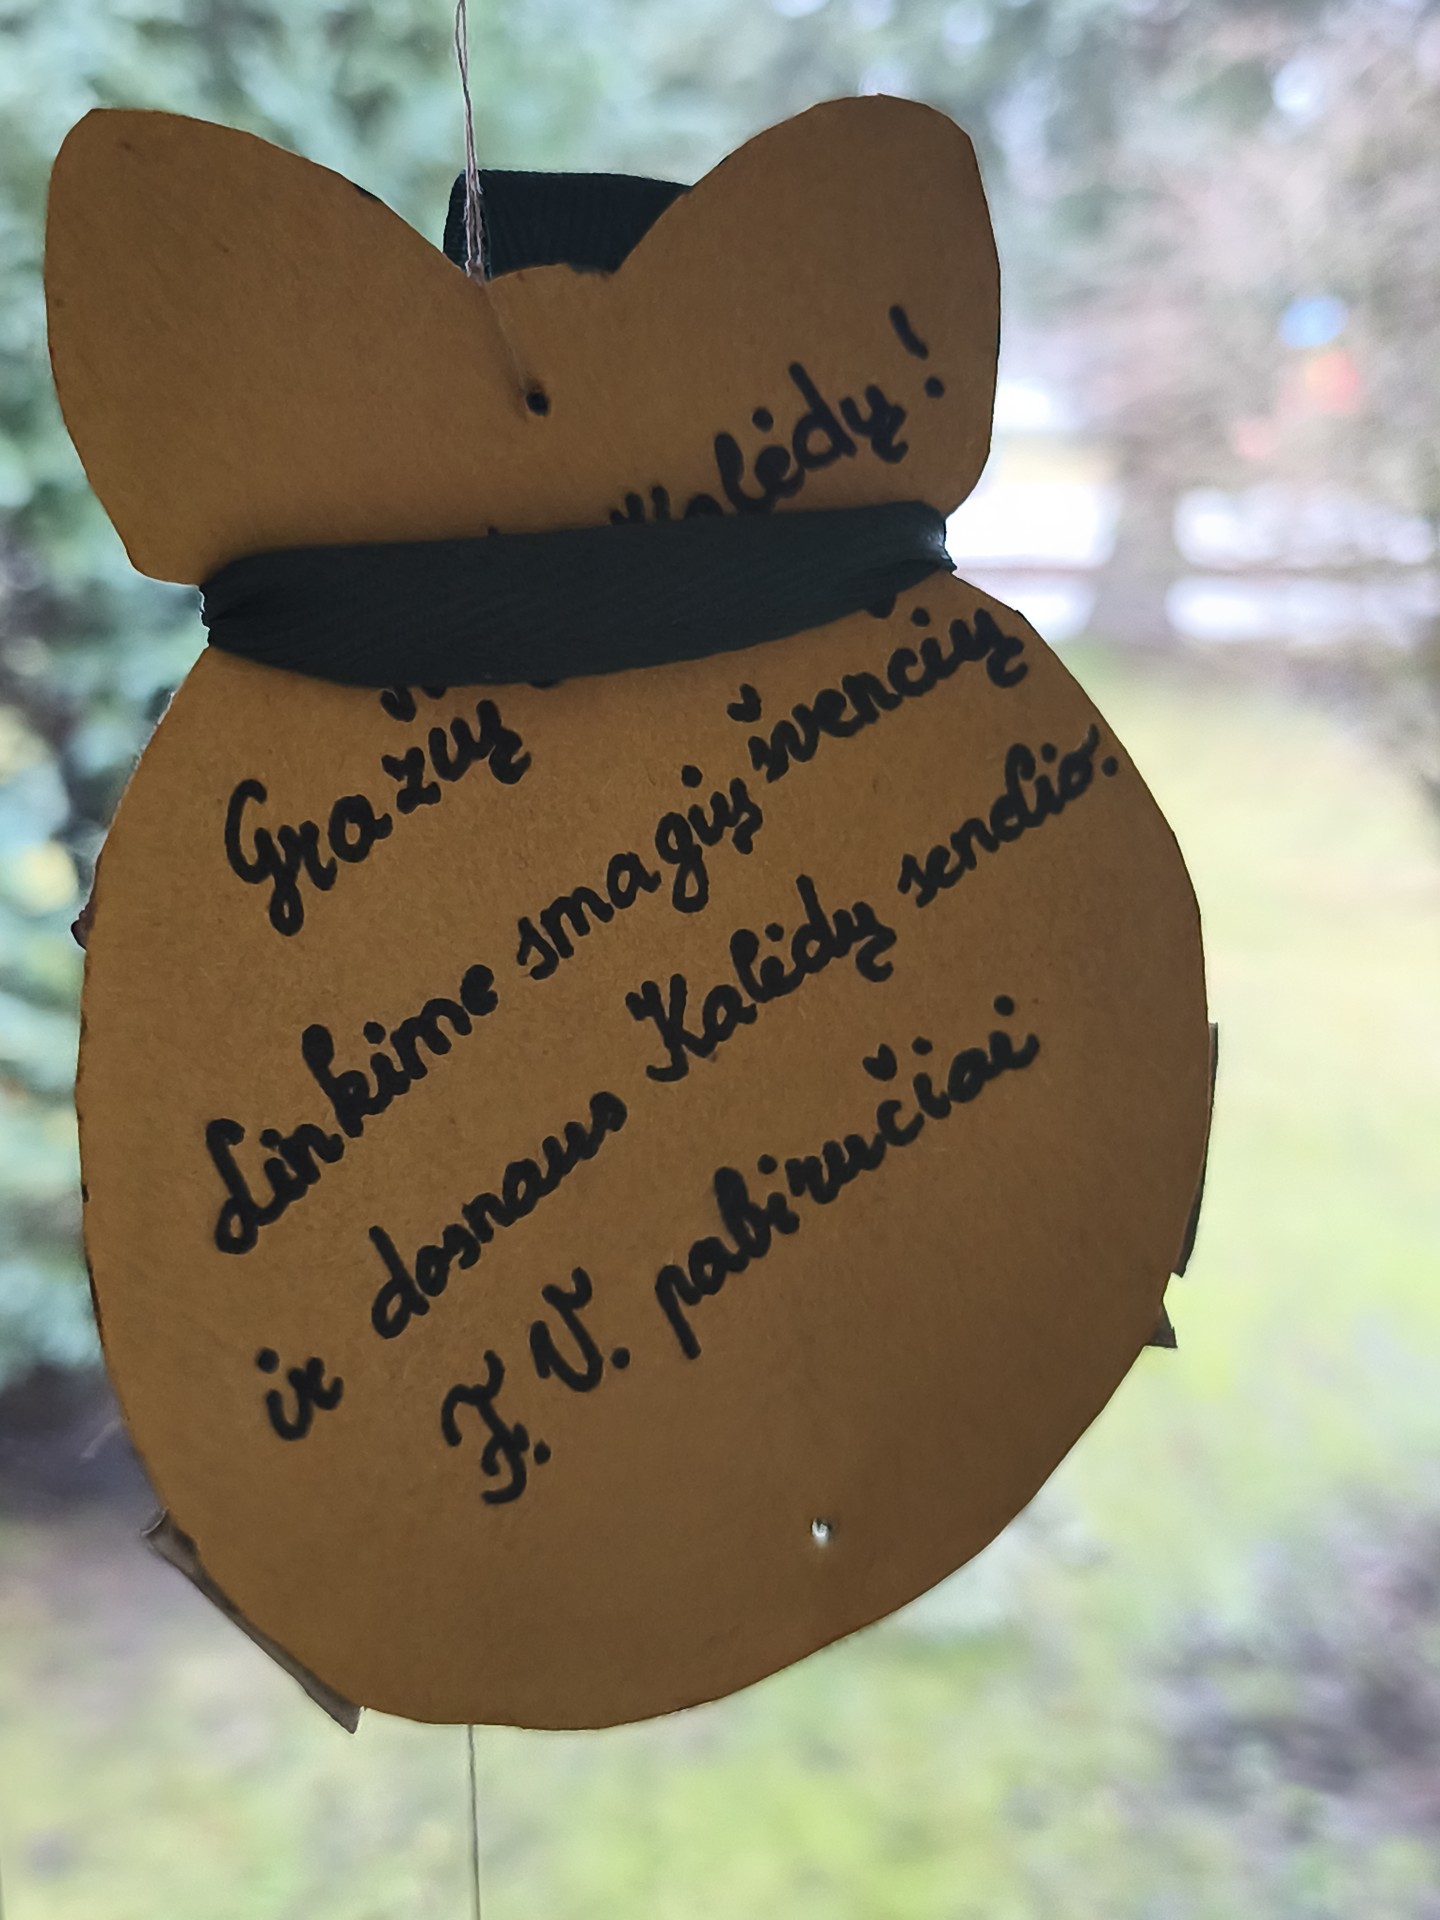 Gražių Kalėdų!
Linkime smagių švenčių
ir dosnaus Kalėdų senelio.
F. V. pabiručiai